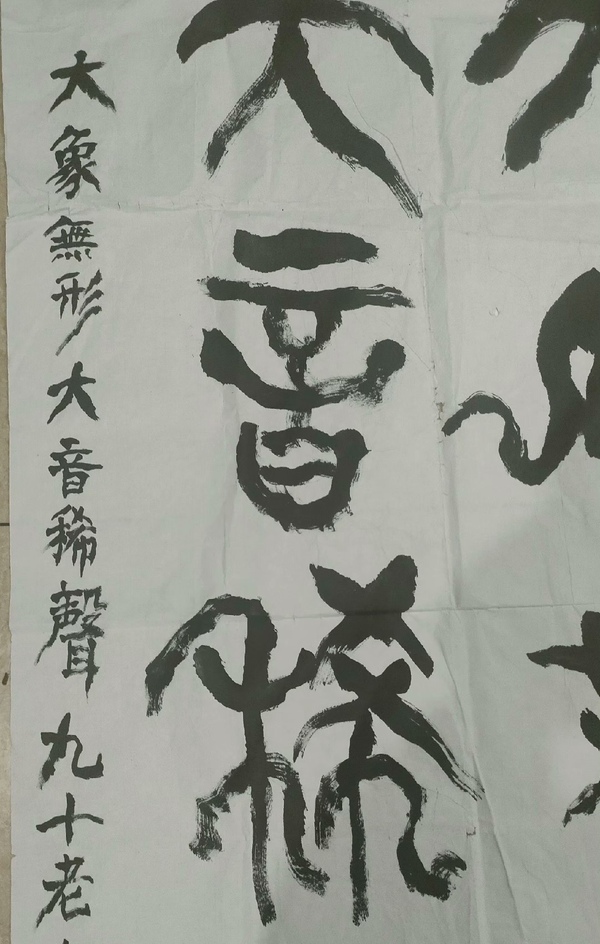 大音稀
大象無形大音稀聲九十老